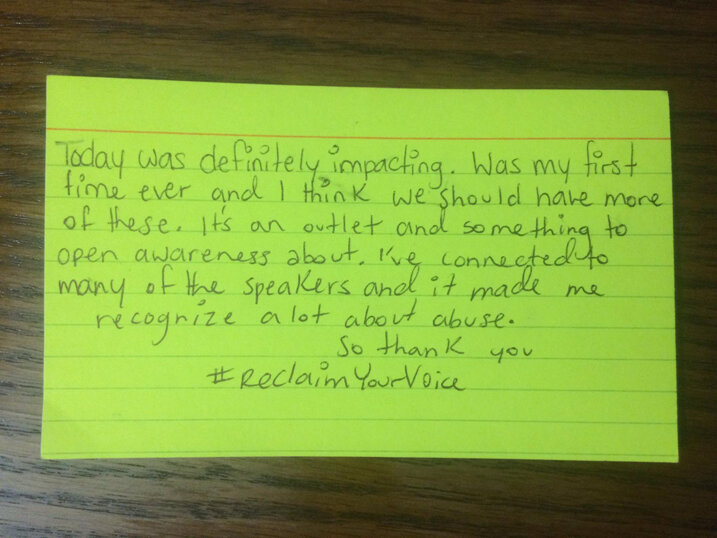 Today was definitely impacting. Was my first
time ever and I think we should have more
of these. It's an outlet and something to
open awareness about. I've connected to
many of the speakers and it made me
recognize a lot about abuse.
So thank you
#ReclaimYourVoice